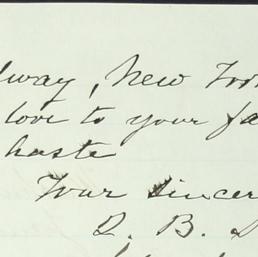 dway, New York
love to your fa
haste
Your Sincer
D. B. S